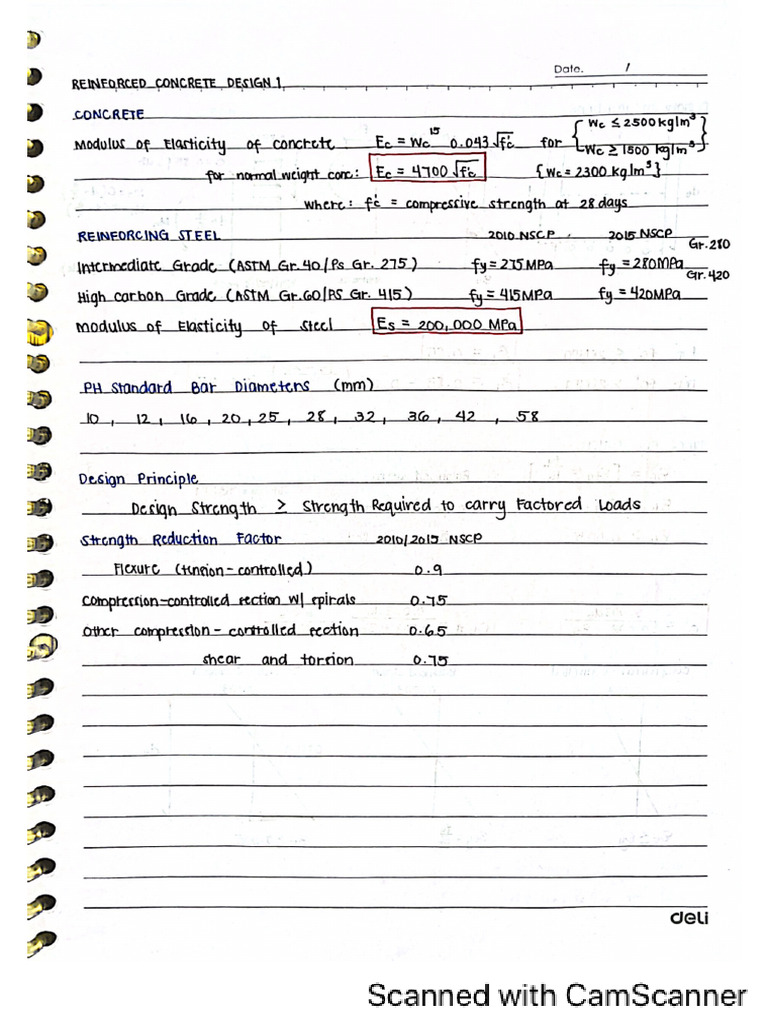 Date. /
REINFORCED CONCRETE DESIGN 1
CONCRETE
Modulus of Elasticity of concrete Ec = Wc^1.5 0.043√f'c for { Wc ≤ 2500 kg/m³
Wc ≥ 1500 kg/m³ }
for normal weight conc: Ec = 4700√f'c {Wc = 2300 kg/m³}
where: f'c = compressive strength at 28 days
REINFORCING STEEL 2010 NSCP 2015 NSCP
Gr. 280
Intermediate Grade (ASTM Gr. 40/PS Gr. 275) fy = 275MPa fy = 280MPa
Gr. 420
High Carbon Grade (ASTM Gr. 60/PS Gr. 415) fy = 415MPa fy = 420MPa
Modulus of Elasticity of Steel Es = 200,000 MPa
PH Standard Bar Diameters (mm)
10, 12, 16, 20, 25, 28, 32, 36, 42, 58
Design Principle
Design Strength ≥ Strength Required to carry Factored Loads
Strength Reduction Factor 2010/2015 NSCP
Flexure (tension-controlled) 0.9
Compression-controlled section w/ spirals 0.75
Other compression-controlled section 0.65
shear and torsion 0.75
deli
Scanned with CamScanner